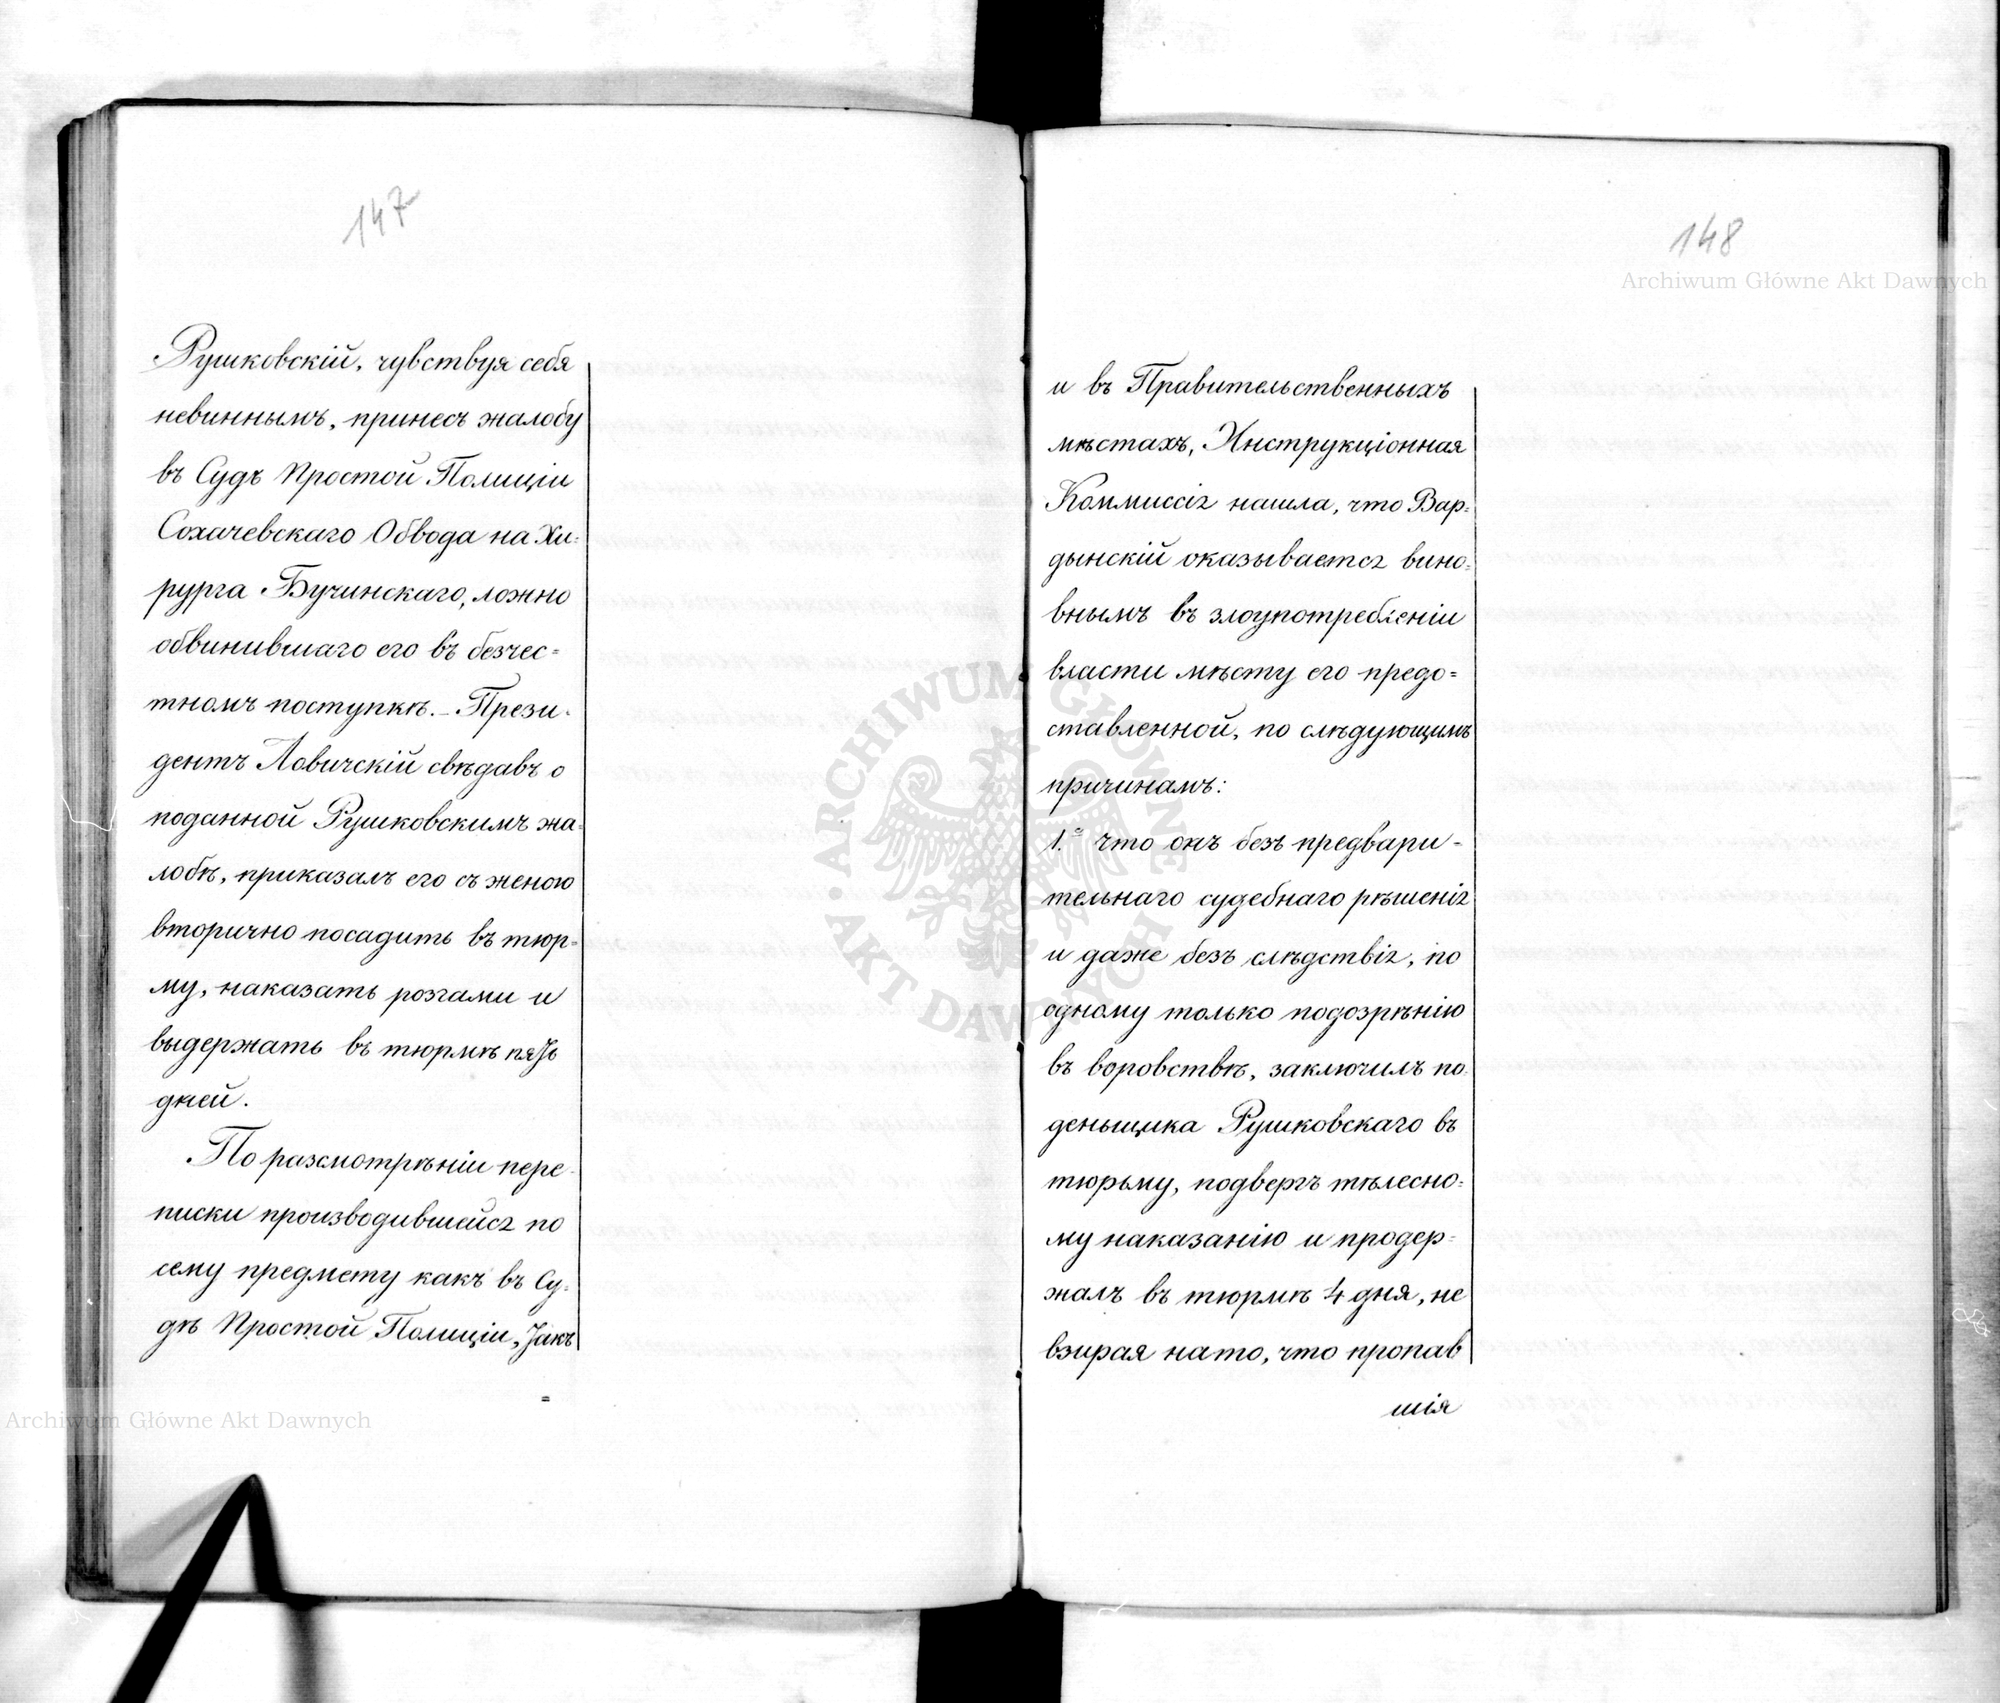 147
Рушковскій, чувствуя себя
невиннымъ, принесъ жалобу
въ Судъ Простой Полиціи
Сохачевскаго Обвода на Хи=
рурга Бучинскаго, ложно
обвинившаго его въ безчес=
тномъ поступкѣ. – Прези-
дентъ Ловичскій свѣдавъ о
поданной Рушковскимъ жа=
лобѣ, приказалъ его съ женою
вторично посадить въ тюр=
му, наказать розгами и
выдержать въ тюрмѣ пять
дней.
По разсмотрѣніи пере-
писки производившейся по
сему предмету какъ въ Су-
дѣ Простой Полиціи, такъ
=
148
и въ Правительственныхъ
мѣстахъ, Инструкціонная
Коммиссія нашла, что Вар=
дынскій оказывается вино=
внымъ въ злоупотребленіи
власти мѣсту его предо=
ставленной, по слѣдующимъ
причинамъ:
1.е что онъ безъ предвари-
тельнаго судебнаго рѣшенія
и даже безъ слѣдствія, по
одному только подозрѣнію
въ воровствѣ, заключилъ по-
деньщика Рушковскаго въ
тюрьму, подвергъ тѣлесно=
му наказанію и продер-
жалъ въ тюрмѣ 4 дня, не
взирая на то, что пропав
шія
Archiwum Główne Akt Dawnych
ARCHIWUM GŁÓWNE AKT DAWNYCH
Archiwum Główne Akt Dawnych